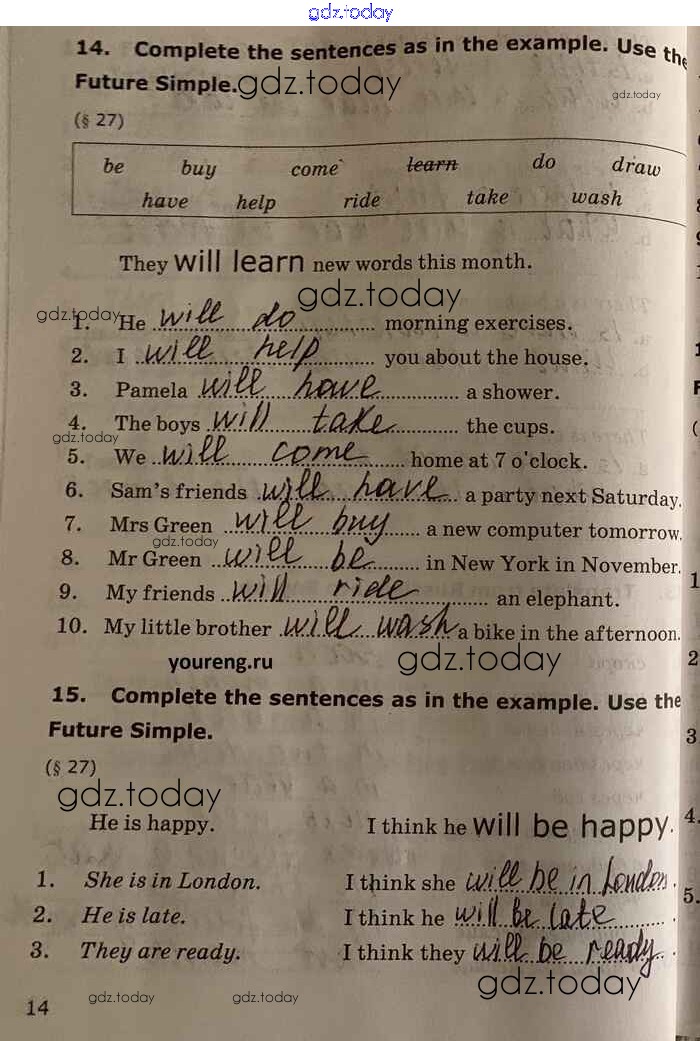 gdz.today
14. Complete the sentences as in the example. Use the
Future Simple. gdz.today
gdz.today
(§ 27)
be buy come learn do draw
have help ride take wash
They will learn new words this month.
gdz.today
gdz.today
1. He will do morning exercises.
2. I will help you about the house.
3. Pamela will have a shower.
4. The boys will take the cups.
gdz.today
5. We will come home at 7 o'clock.
6. Sam's friends will have a party next Saturday.
7. Mrs Green will buy a new computer tomorrow.
gdz.today
8. Mr Green will be in New York in November.
9. My friends will ride an elephant.
10. My little brother will wash a bike in the afternoon.
youreng.ru gdz.today
15. Complete the sentences as in the example. Use the
Future Simple.
(§ 27)
gdz.today
He is happy. I think he will be happy.
1. She is in London. I think she will be in London.
2. He is late. I think he will be late.
3. They are ready. I think they will be ready.
gdz.today
14 gdz.today gdz.today